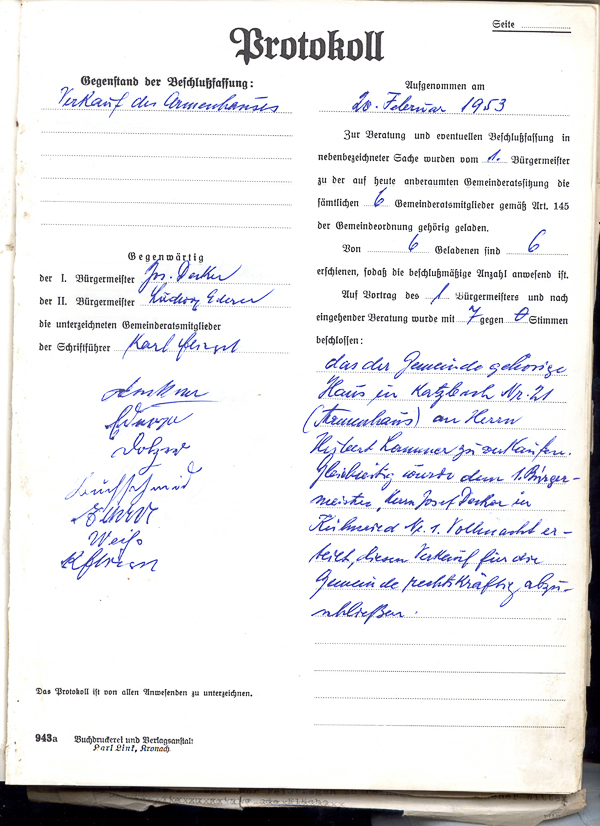 Seite
Protokoll
Gegenstand der Beschlußfassung:
Verkauf des Armenhauses
Gegenwärtig
der I. Bürgermeister Jos. Decker
der II. Bürgermeister Ludwig Ederer
die unterzeichneten Gemeinderatsmitglieder
der Schriftführer Karl
Weiß
Das Protokoll ist von allen Anwesenden zu unterzeichnen.
943a Buchdruckerei und Verlagsanstalt
Karl Link, Kronach
Aufgenommen am
20. Februar 1953
Zur Beratung und eventuellen Beschlußfassung in
nebenbezeichneter Sache wurden vom 1. Bürgermeister
zu der auf heute anberaumten Gemeinderatssitzung die
sämtlichen 6 Gemeinderatsmitglieder gemäß Art. 145
der Gemeindeordnung gehörig geladen.
Von 6 Geladenen sind 6
erschienen, sodaß die beschlußmäßige Anzahl anwesend ist.
Auf Vortrag des 1 Bürgermeisters und nach
eingehender Beratung wurde mit 7 gegen 0 Stimmen
beschlossen:
das der Gemeinde gehörige
Haus in Katzbach Nr. 21
(Armenhaus) an Herrn
Herbert Lammer zu verkaufen.
Gleichzeitig wurde dem 1. Bürger-
meister, Herrn Josef Decker in
Kühnried Nr. 1. Vollmacht er-
teilt, diesen Verkauf für die
Gemeinde rechtskräftig abzu-
schließen.